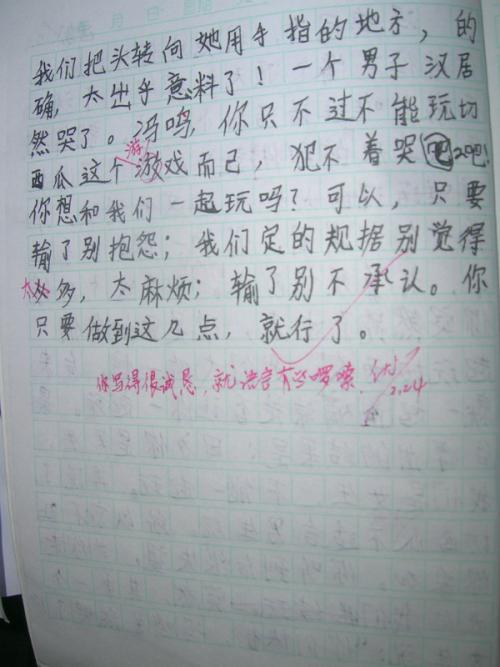 我们把头转向她用手指的地方，的
确，太出乎意料了！一个男子汉居
然哭了。冯鸣，你只不过不能玩切
西瓜这个游戏而己，犯不着哭吧2吧!
游
你想和我们一起玩吗？可以，只要
输了别抱怨；我们定的规据别觉得
太多，太麻烦；输了别不承认。你
只要做到这几点，就行了。
你写得很诚恳，就语言有些啰嗦.
2.24